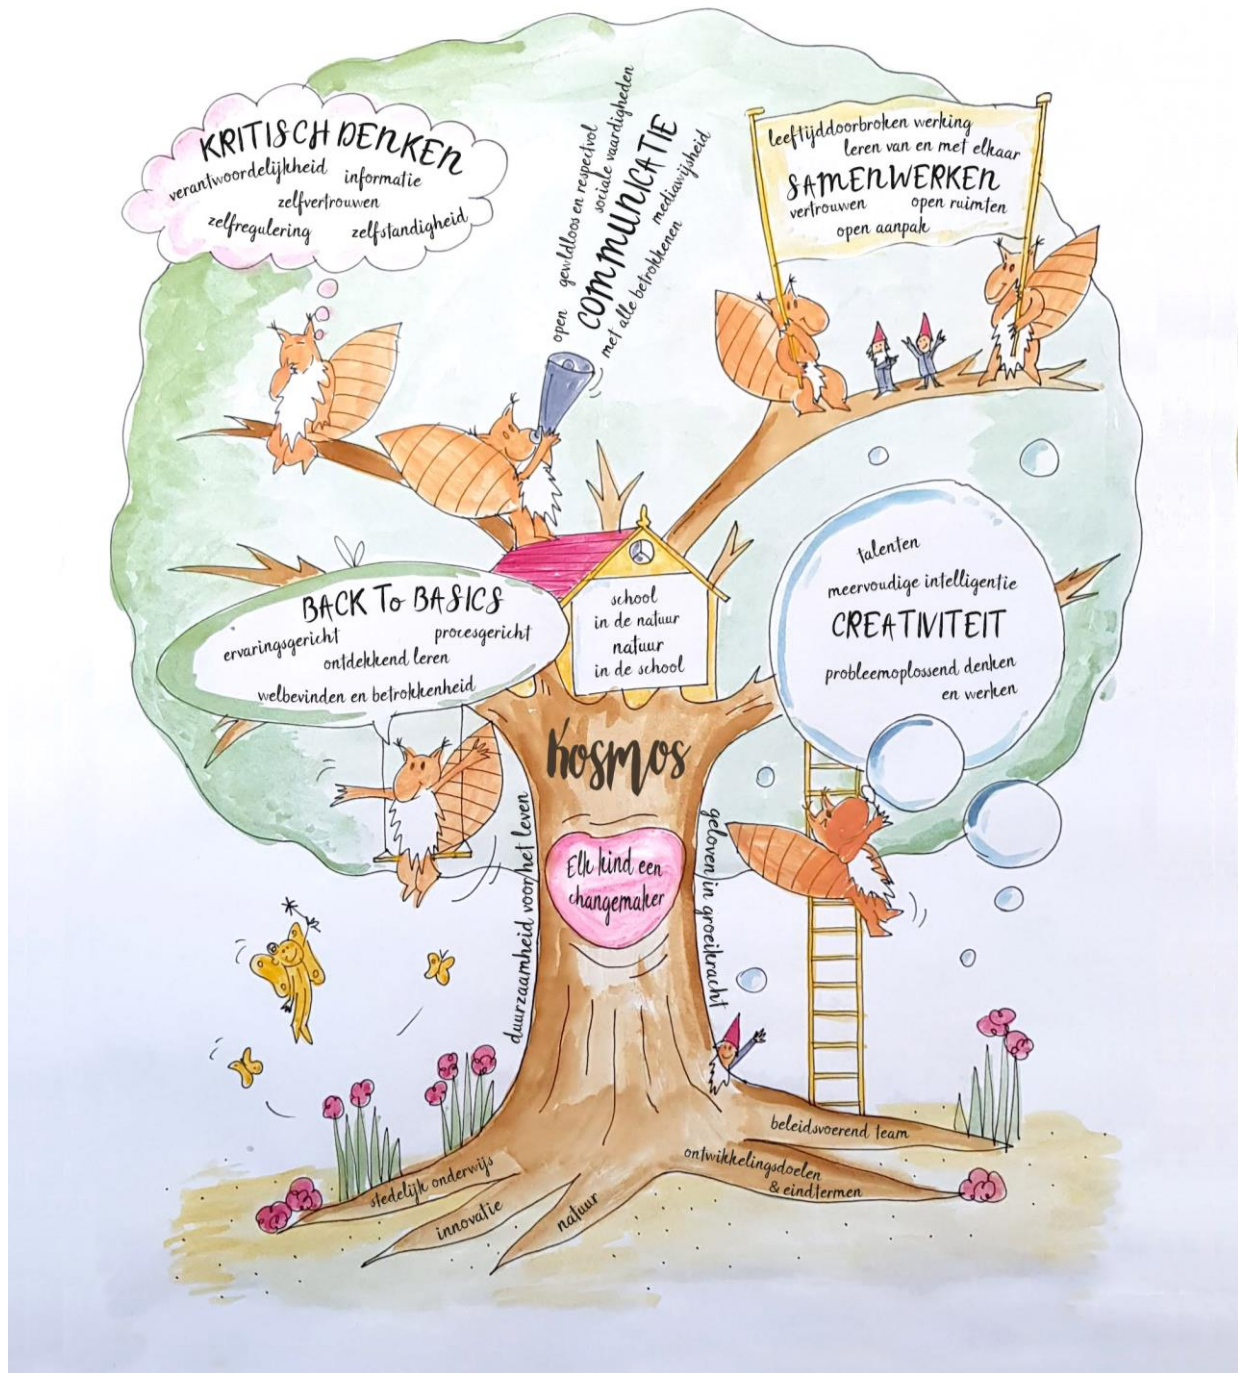 KRITISCH DENKEN
verantwoordelijkheid
informatie
zelfvertrouwen
zelfregulering
zelfstandigheid
open
gewldloos en respectvol
sociale vaardigheden
COMMUNICATIE
mediawijsheid
met alle betrokkenen
leeftijddoorbroken werking
leren van en met elkaar
SAMENWERKEN
vertrouwen
open ruimten
open aanpak
BACK To BASICS
ervaringsgericht
procesgericht
ontdekkend leren
welbevinden en betrokkenheid
school
in de natuur
natuur
in de school
talenten
meervoudige intelligentie
CREATIVITEIT
probleemoplossend denken
en werken
Kosmos
duurzaamheid voor het leven
Elk kind een
changemaker
geloven in groeikracht
stedelijk onderwijs
innovatie
natuur
beleidsvoerend team
ontwikkelingsdoelen
& eindtermen